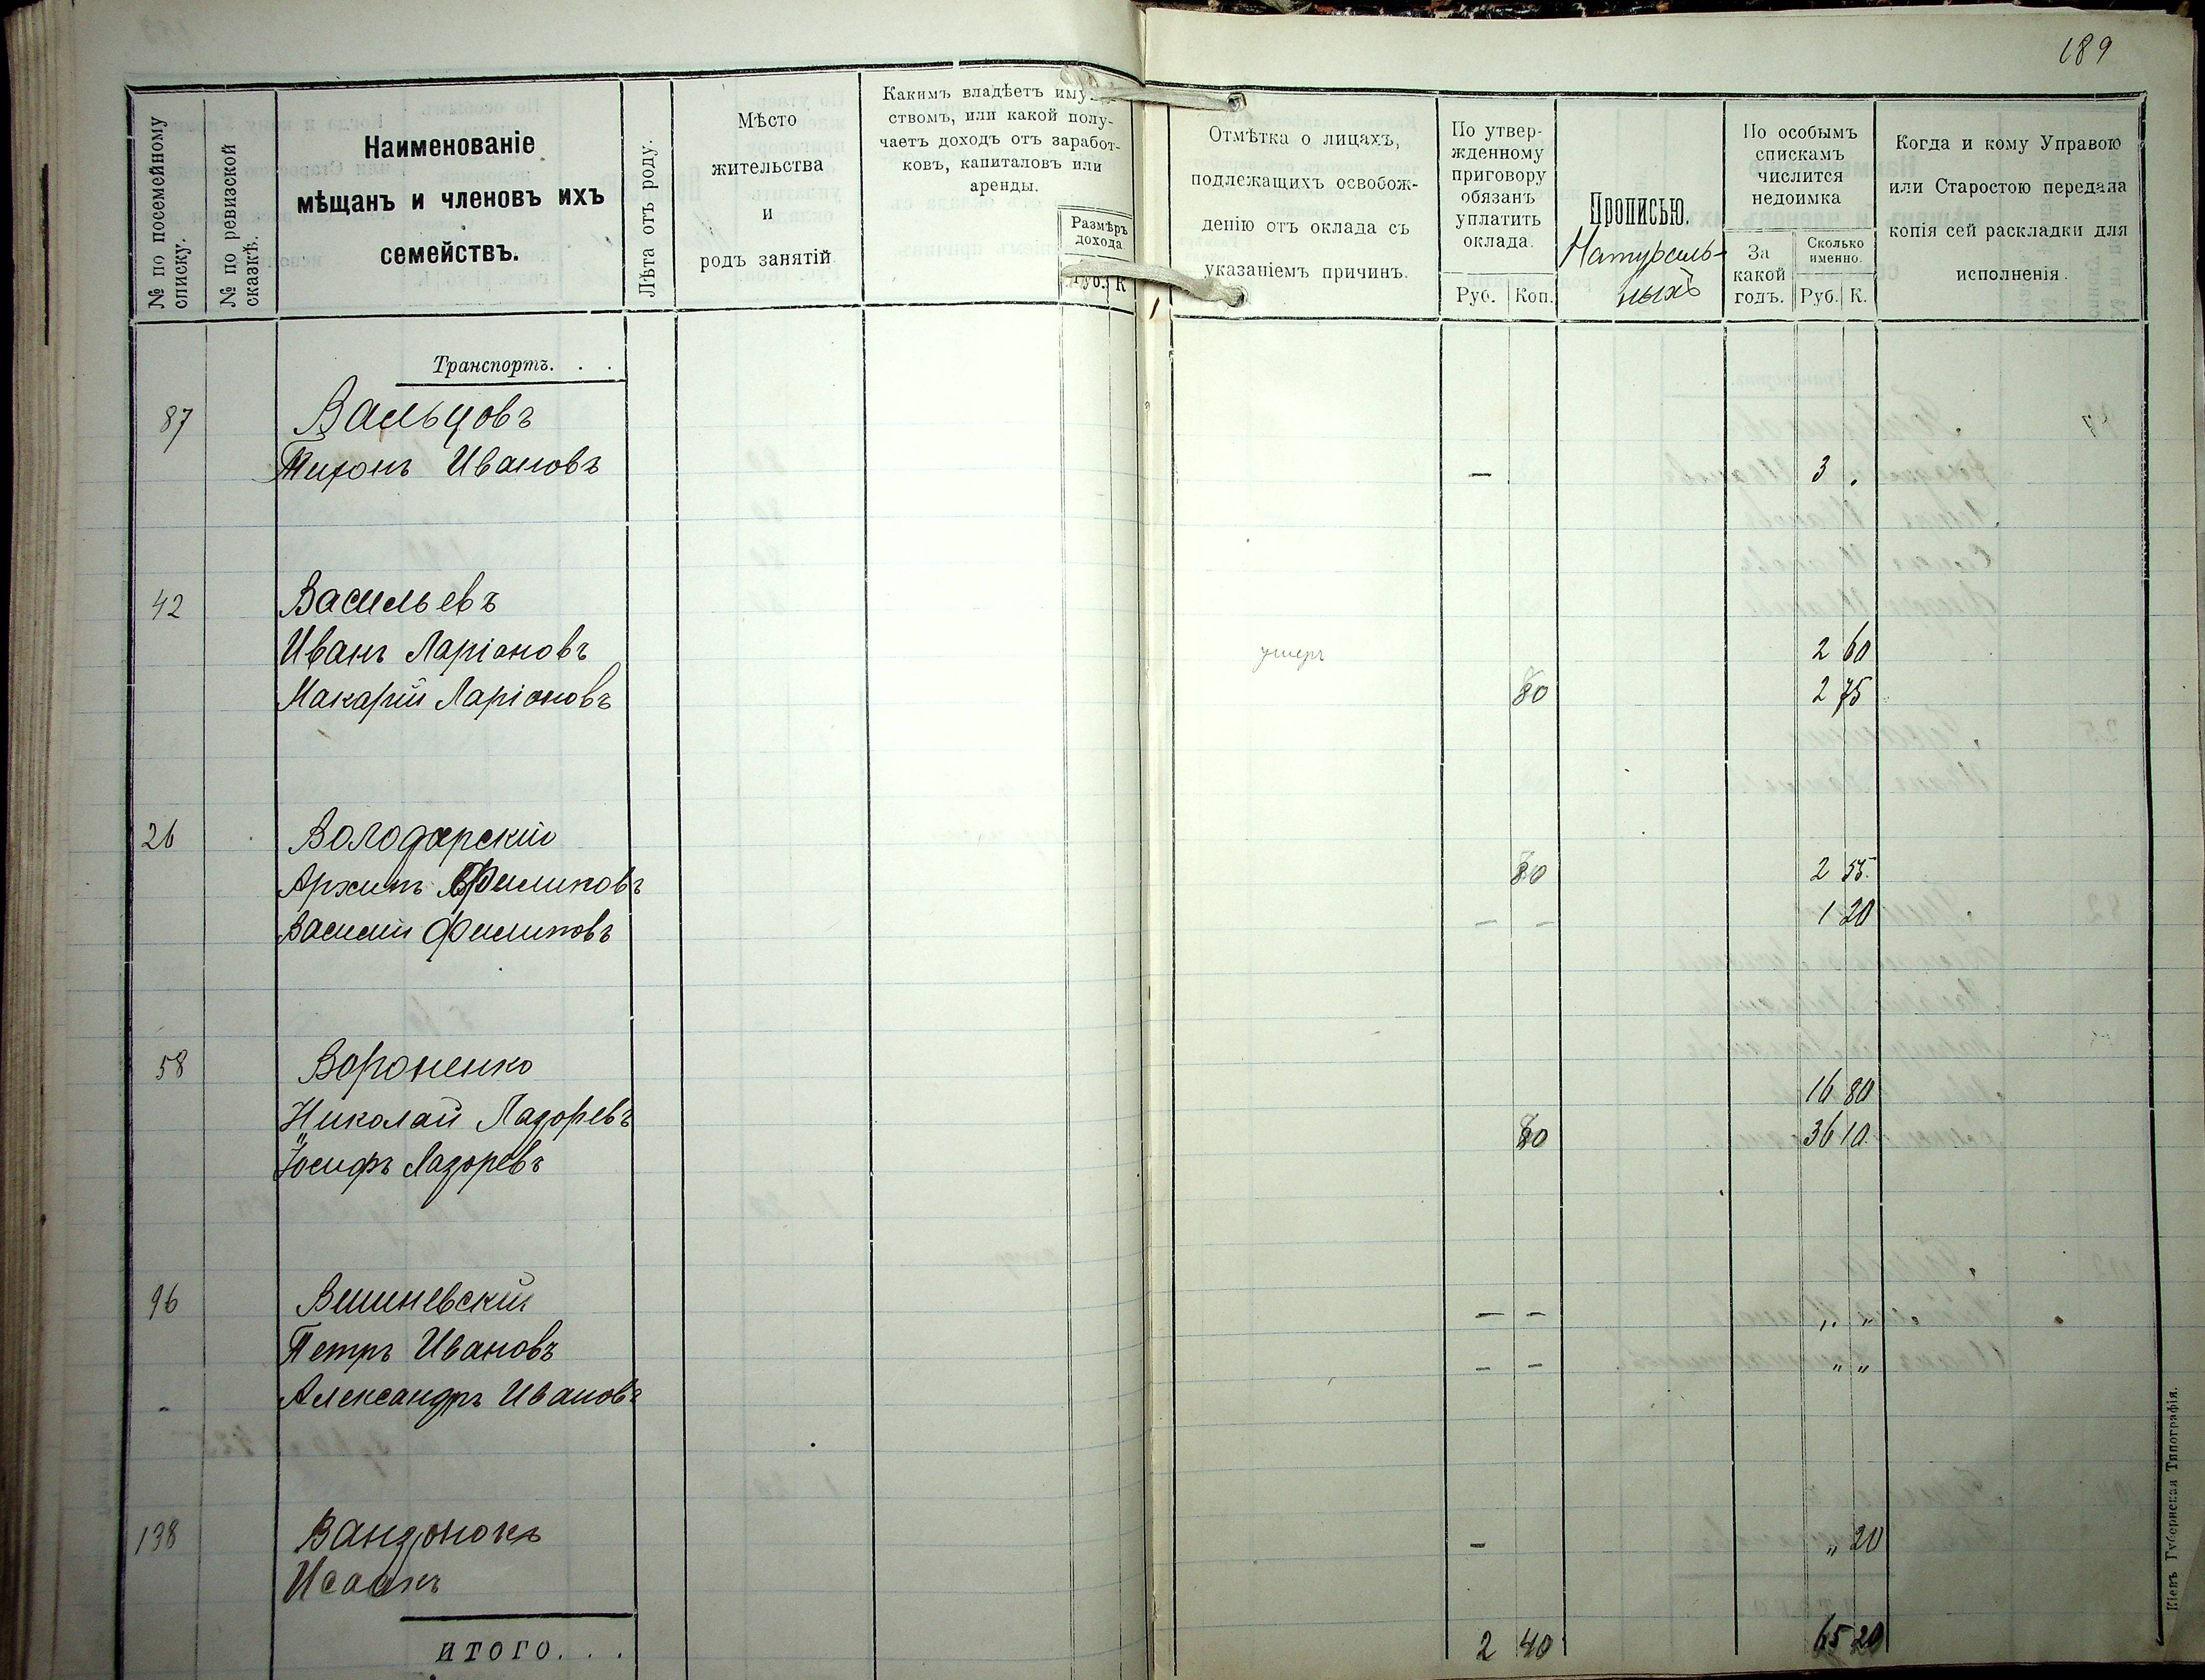 189
№ по посемейному списку.
№ по ревизской сказкѣ.
Наименованіе
мѣщанъ и членовъ ихъ
семействъ.
Лѣта отъ роду.
Мѣсто
жительства
и
родъ занятій
Какимъ владѣетъ иму-
ствомъ, или какой полу-
чаетъ доходъ отъ заработ-
ковъ, капиталовъ или
аренды.
Размѣръ
дохода
Руб. К
Отмѣтка о лицахъ,
подлежащихъ освобож-
денію отъ оклада съ
указаніемъ причинъ.
По утвер-
жденному
приговору
обязанъ
уплатить
оклада.
Руб. Коп.
Прописью.
Натураль-
ныхъ
По особымъ
спискамъ
числится
недоимка
За
какой
годъ.
Сколько
именно.
Руб. К.
Когда и кому Управою
или Старостою передана
копія сей раскладки для
исполненія.
Транспортъ. . .
87 Вальцовъ
Тихонъ Ивановъ — 3 .
42 Васильевъ
Иванъ Ларіоновъ умеръ 2 60
Макарій Ларіоновъ 80 2 75
26 Володарскій
Архипъ Филиповъ 80 2 55.
Василій Филиповъ — — 1 20
58 Вороненко
16 80
Николай Лазоревъ 80 36 10.
Іосифъ Лазоревъ
96 Вишневскій — — „ „
Петръ Ивановъ — — „ „
Александръ Ивановъ
138 — „ 20
Исаакъ
ИТОГО. . . 2 40 65 20
Кіевъ Губернская Типографія.